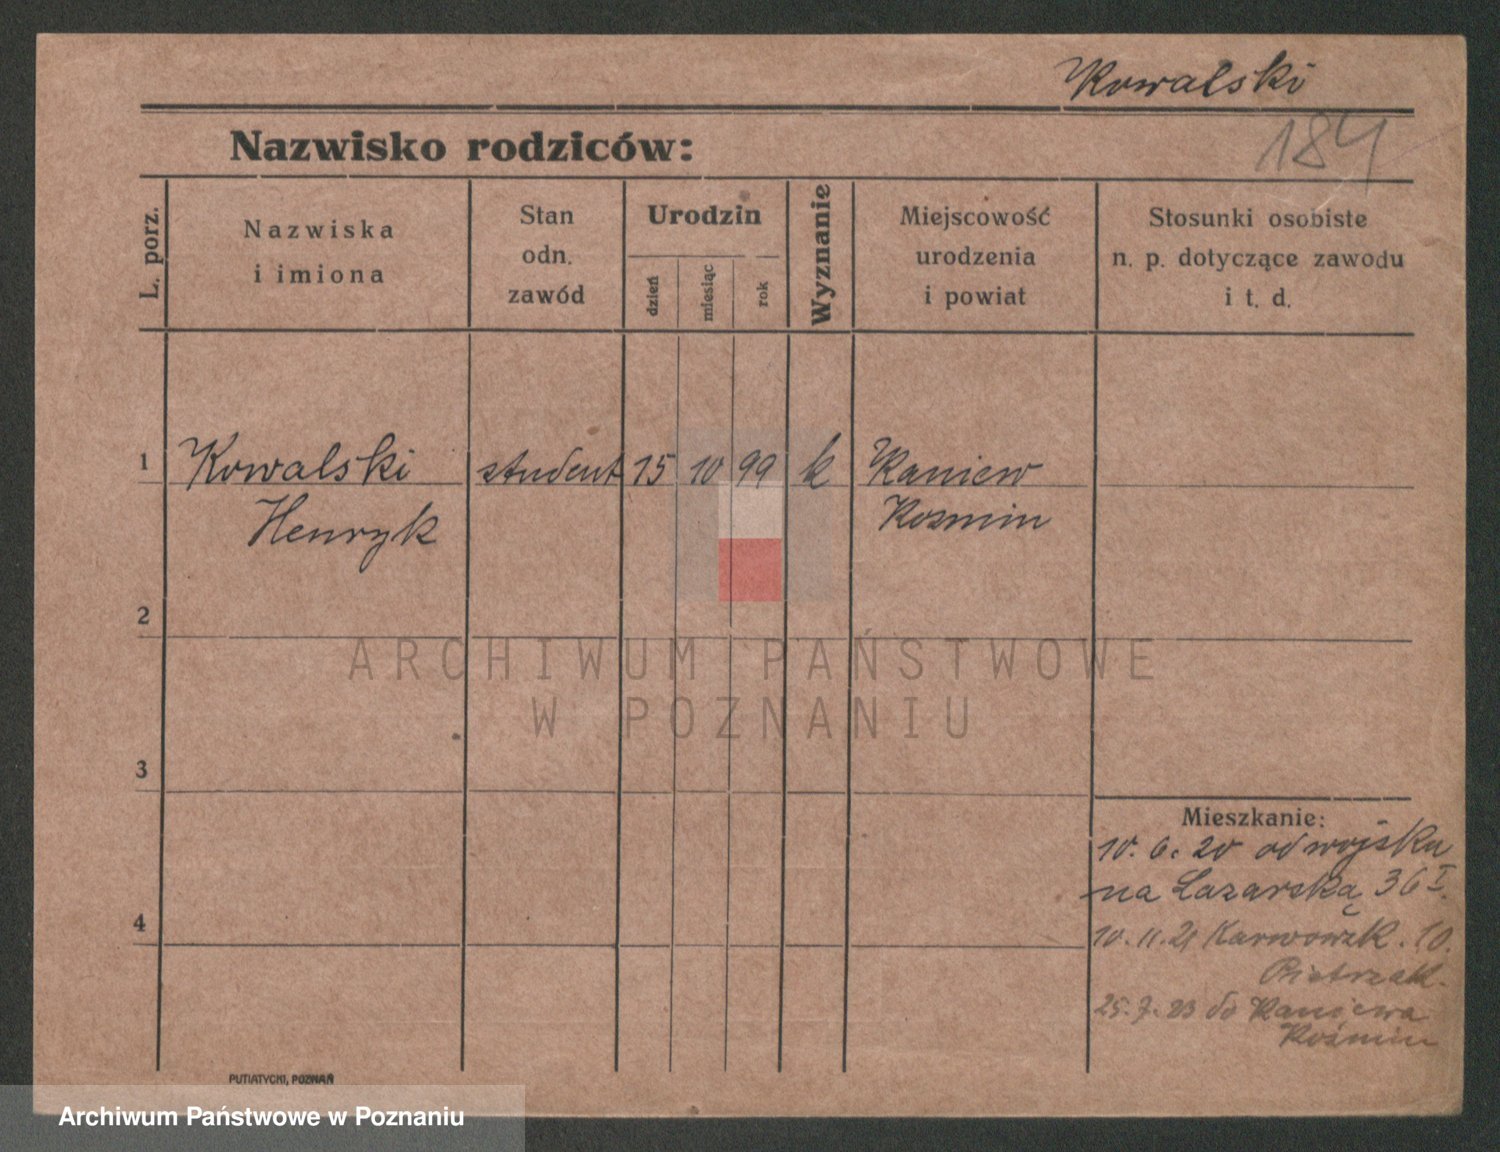 Kowalski
184
Nazwisko rodziców:
L. porz.
Nazwiska
i imiona
Stan
odn.
zawód
Urodzin
dzień
miesiąc
rok
Wyznanie
Miejscowość
urodzenia
i powiat
Stosunki osobiste
n. p. dotyczące zawodu
i t. d.
1 Kowalski student 15 10 99 k Kaniew
Henryk Kozmin
2
ARCHIWUM PAŃSTWOWE
W POZNANIU
3
Mieszkanie:
10. 6. 20 od wojska
na Łazarską 36 I.
4
10. 11. 21 Karwowsk. 10.
Pietrzak.
25. 7. 23 do Kaniewa
Koźmin
PUTIATYCKI, POZNAŃ
Archiwum Państwowe w Poznaniu